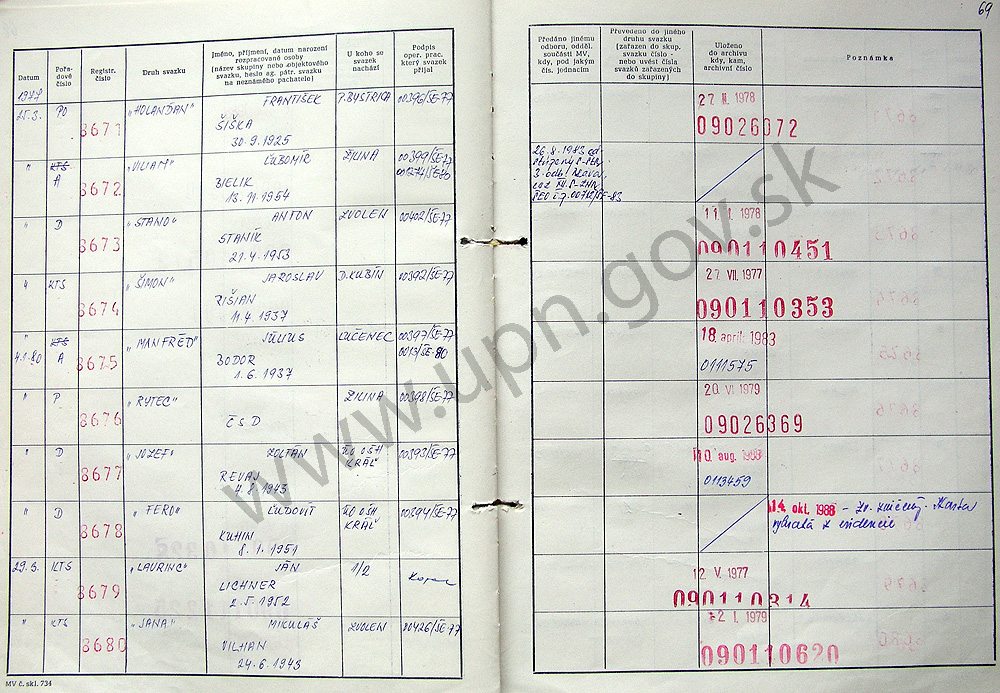 69
Datum
Pořadové číslo
Registr. číslo
Druh svazku
Jméno, příjmení, datum narození rozpracované osoby (název skupiny nebo objektového svazku, heslo ag. pátr. svazku na neznámého pachatele)
U koho se svazek nachází
Podpis oper. prac. který svazek přijal
Předáno jinému odboru, odděl. součásti MV, kdy, pod jakým čís. jednacím
Převedeno do jiného druhu svazku (zařazen do skup. svazku číslo - nebo uvést čísla svazků zařazených do skupiny)
Uloženo do archivu kdy, kam, archivní číslo
Poznámka
1977
25.3. PO 8671 „HOLANĎAN" FRANTIŠEK P. BYSTRICA 00396/ŠE-77 1978
ŠIŠKA 09026072
30.9.1925
" KTS „VILIAM" ĽUBOMÍR ŽILINA 00399/ŠE-77 26.8.1983
A 8672 BIELIK
13.11.1954
" D „STANO" ANTON ZVOLEN 00402/ŠE-77 1978
8673 STANÍK 090110451
21.4.1953
KTS „ŠIMON" JAROSLAV D. KUBÍN 00392/ŠE-77 27. VII. 1977
8674 RIŠIAN 090110353
11.4.1937
" KTS „MANFRÉD" JÚLIUS LUČENEC 00397/ŠE-77 18. apríl 1983
4.1.80 A 8675 BODOR 0013/ŠE-80 0111575
1.6.1937
" P „RYTEC" ŽILINA 00398/ŠE-77 20. VI. 1979
8676 ČSD 09026369
" D „JOZEF" ZOLTÁN ÚO OŠH KRÁĽ 00393/ŠE-77 10. aug. 1988
8677 REVAJ 0113459
4.8.1943
" D „FERO" ĽUDOVÍT ÚO OŠH KRÁĽ 00394/ŠE-77 14. okt. 1988 - zv. zničený. Karta
8678 KUHIN vyňatá z evidencie
8.1.1951
29.3. KTS „LAURINC" JÁN 1/2 12. V. 1977
8679 LICHNER 090110314
2.5.1952
" KTS „JANA" MIKULÁŠ ZVOLEN 00426/ŠE-77 1979
8680 VILHAN 090110620
24.6.1943
MV č. skl. 734
www.upn.gov.sk